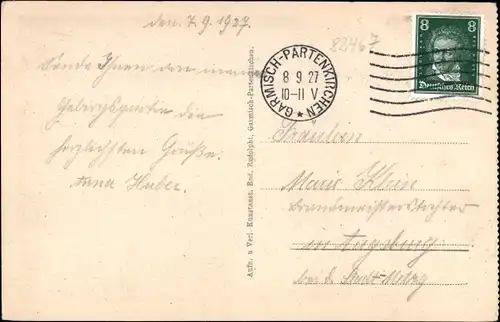 den 7.9.1927.
Sende Ihnen von meiner
Gebirgspartie die
herzlichsten Grüße.
Anna Huber.
Aufn. u Verl. Kunstanst. Rud. Rudolphi, Garmisch-Partenkirchen.
82467
GARMISCH-PARTENKIRCHEN
8 9 27
10-11 V
8 8
Deutsches Reich
Fräulein
Marie Klein
Brandmeisterstochter
in Augsburg
bei d.